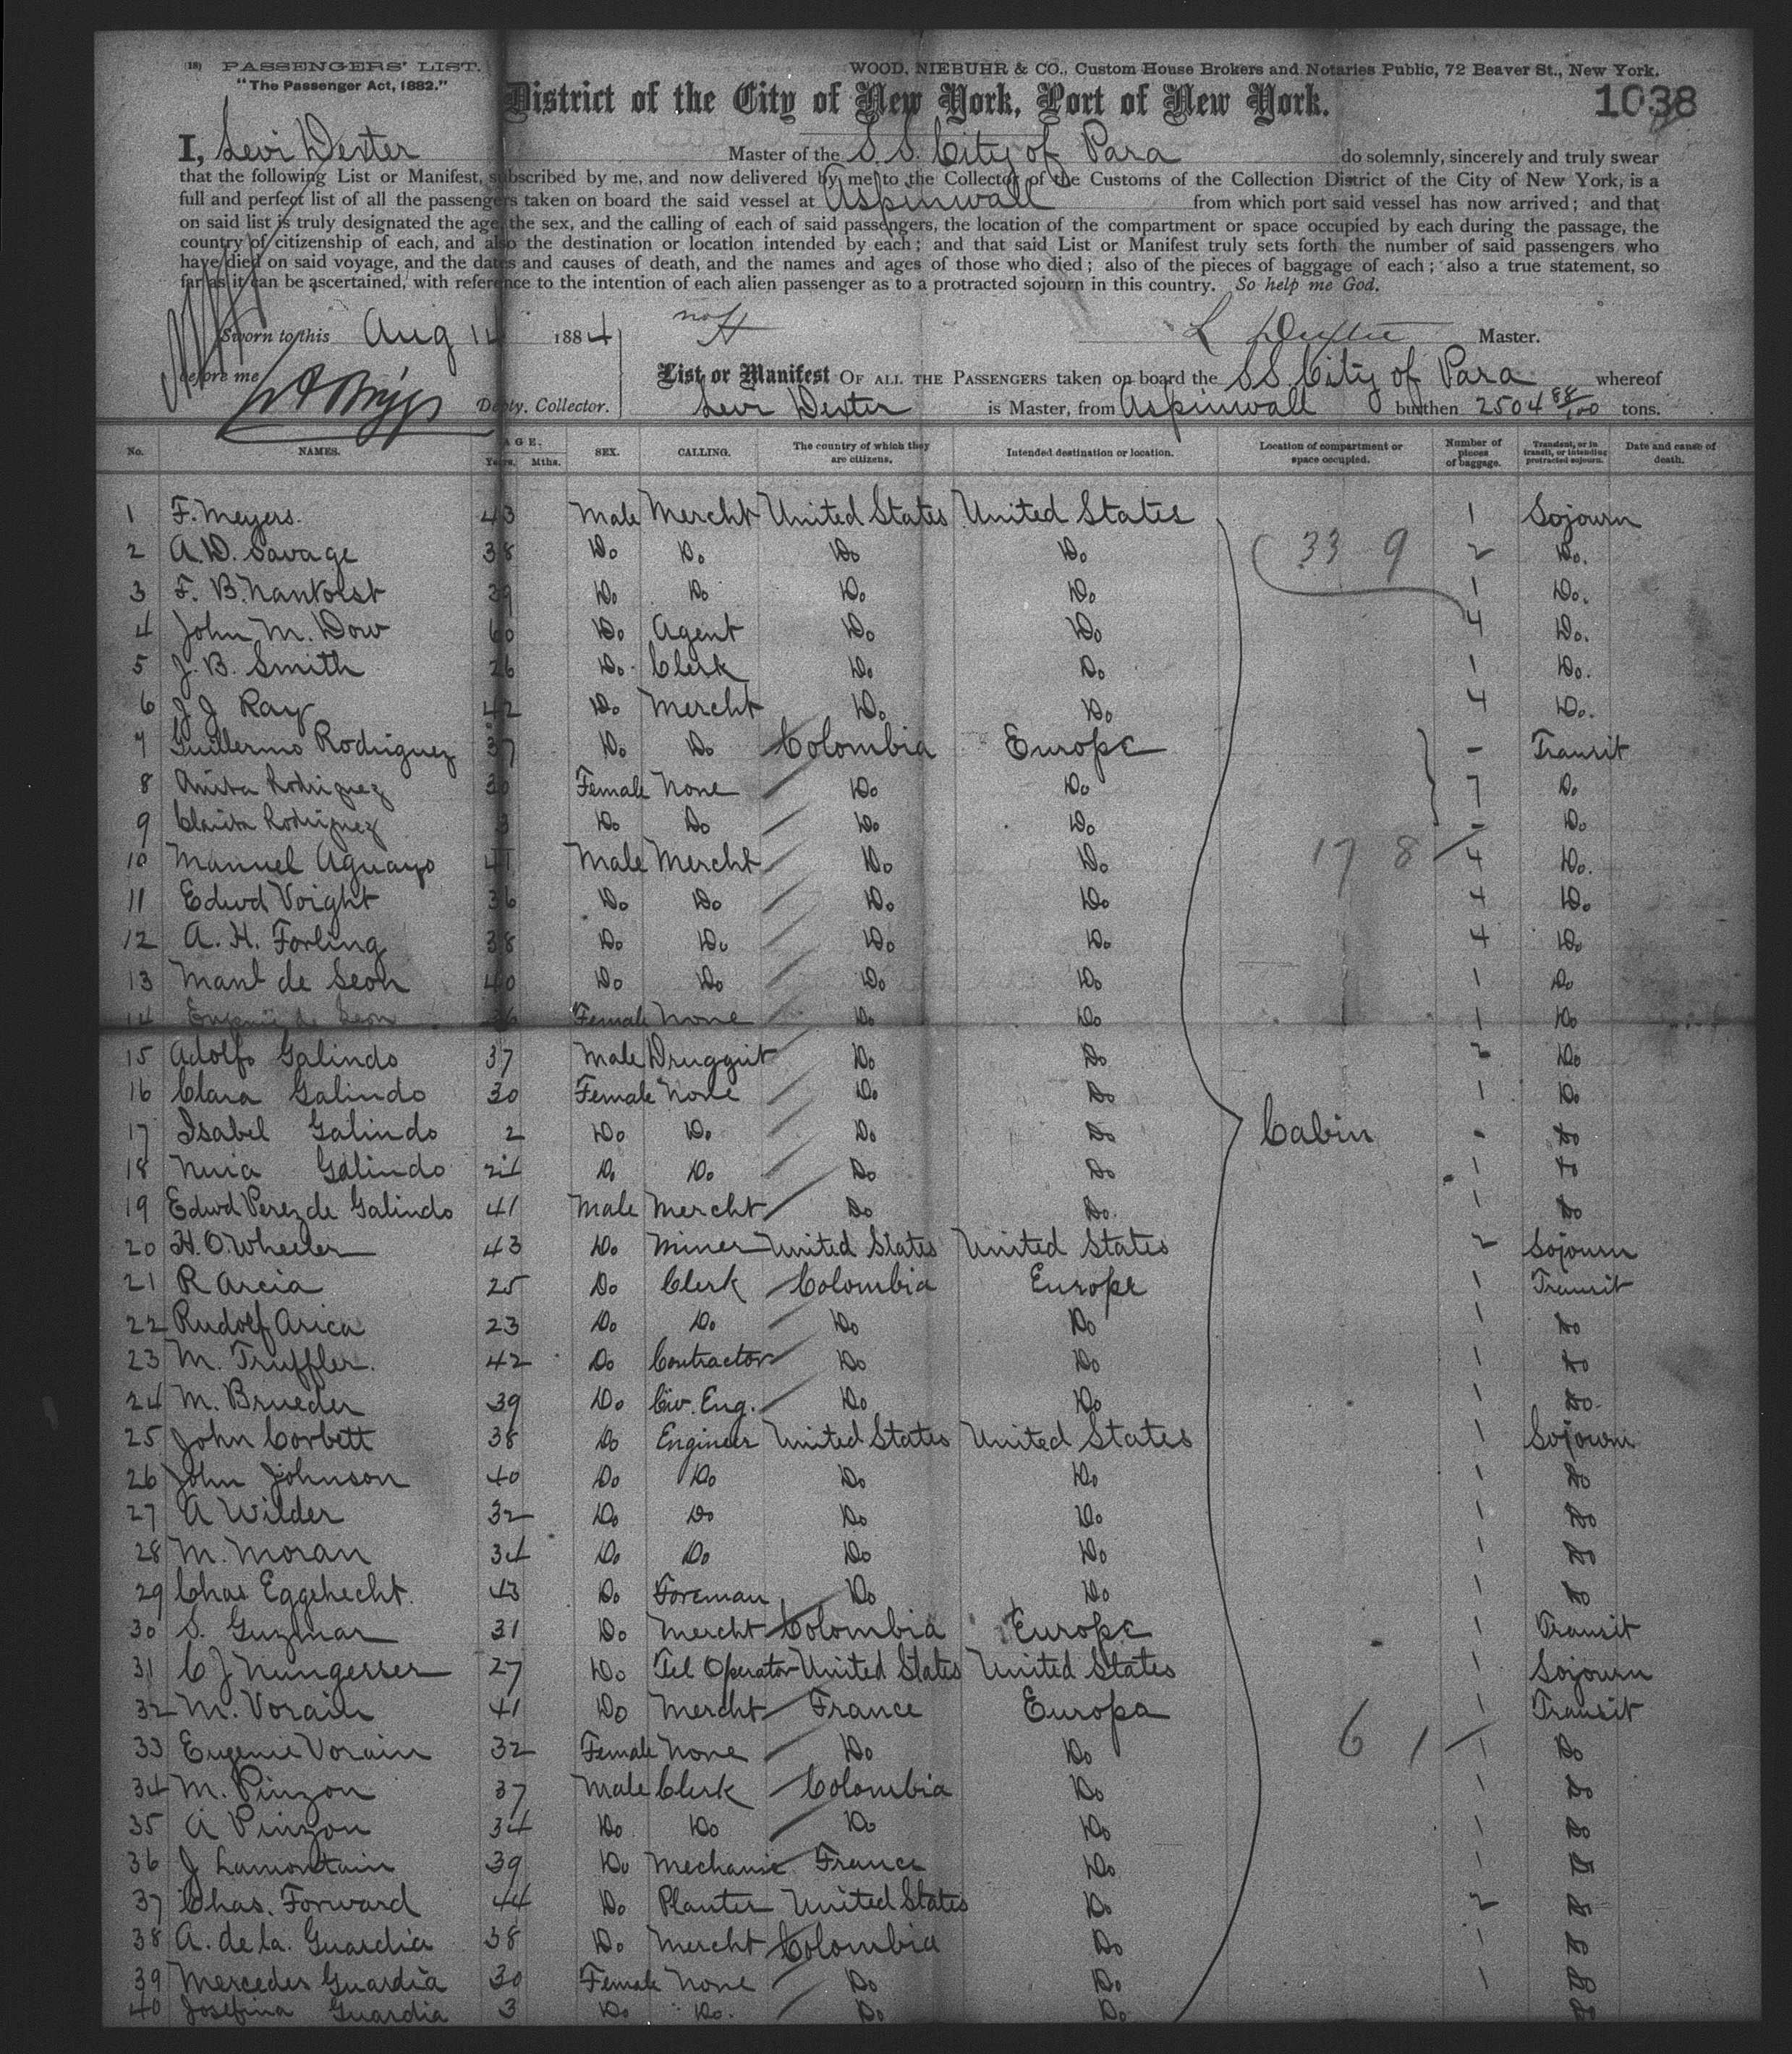 (18) PASSENGERS' LIST.
"The Passenger Act, 1882."
WOOD, NIEBUHR & CO., Custom House Brokers and Notaries Public, 72 Beaver St., New York.
District of the City of New York, Port of New York.
1038
I, Levi Dexter Master of the S.S. City of Para do solemnly, sincerely and truly swear
that the following List or Manifest, subscribed by me, and now delivered by me to the Collector of the Customs of the Collection District of the City of New York, is a
full and perfect list of all the passengers taken on board the said vessel at Aspinwall from which port said vessel has now arrived; and that
on said list is truly designated the age, the sex, and the calling of each of said passengers, the location of the compartment or space occupied by each during the passage, the
country of citizenship of each, and also the destination or location intended by each; and that said List or Manifest truly sets forth the number of said passengers who
have died on said voyage, and the dates and causes of death, and the names and ages of those who died; also of the pieces of baggage of each; also a true statement, so
far as it can be ascertained, with reference to the intention of each alien passenger as to a protracted sojourn in this country. So help me God.
Sworn to this Aug 14 1884 L Dexter Master.
before me
Depty. Collector.
List or Manifest OF ALL THE PASSENGERS taken on board the S.S. City of Para whereof
Levi Dexter is Master, from Aspinwall burthen 2504 88/100 tons.
No. NAMES. AGE. Years. Mths. SEX. CALLING. The country of which they are citizens. Intended destination or location. Location of compartment or space occupied. Number of pieces of baggage. Transient, or in transit, or intending protracted sojourn. Date and cause of death.
1 F. Meyers. 43 Male Mercht United States United States 1 Sojourn
2 A.D. Savage 38 Do Do Do Do 33 9 2 Do.
3 F. B. Nantoist 29 Do Do Do Do 1 Do.
4 John M. Dow 60 Do Agent Do Do 4 Do.
5 J. B. Smith 26 Do. Clerk Do Do 1 Do.
6 J J Ray 42 Do Mercht Do. Do 4 Do.
7 Guillermo Rodriguez 37 Do Do Colombia Europe - Transit
8 Anita Rodriguez 30 Female None Do Do 7 Do
9 Clarita Rodriguez 3 Do Do Do Do - Do
10 Manuel Aguayo 41 Male Mercht Do Do 17 8 4 Do.
11 Edwd Voight 36 Do Do Do Do 4 Do
12 A. H. Forling 38 Do Do Do Do 4 Do
13 Manl de Leon 40 Do Do Do Do 1 Do
14 Eugenie de Leon 36 Female None Do Do 1 Do
15 Adolfo Galindo 37 Male Druggist Do Do 2 Do
16 Clara Galindo 30 Female None Do Do 1 Do
17 Isabel Galindo 2 Do Do. Do Do Cabin - Do
18 Nuia Galindo 24 Do Do Do Do 1 Do
19 Edwd Perez de Galindo 41 Male Mercht Do Do. 1 Do
20 H. O. Wheeler 43 Do Miner United States United States 2 Sojourn
21 R Arcia 25 Do Clerk Colombia Europe 1 Transit
22 Rudolf Arica 23 Do Do Do Do 1 Do
23 M. Truffler. 42 Do Contractor Do Do 1 Do
24 M. Brueder 39 Do Civ. Eng. Do Do 1 Do.
25 John Corbett 38 Do Engineer United States United States 1 Sojourn
26 John Johnson 40 Do Do Do Do 1 Do
27 A Wilder 32 Do Do Do Do 1 Do
28 M. Moran 34 Do Do Do Do 1 Do
29 Chas Eggehecht. 43 Do Foreman Do Do 1 Do
30 S. Guzman 31 Do Mercht Colombia Europe 1 Transit
31 C J Nungesser 27 Do Tel Operator United States United States 1 Sojourn
32 M. Vorain 41 Do Mercht France Europa 6 1 1 Transit
33 Eugenie Vorain 32 Female None Do Do 1 Do
34 M. Pinzon 37 Male Clerk Colombia Do 1 Do
35 A Pinzon 34 Do Do Do Do 1 Do
36 J Lamontain 39 Do Mechanic France Do 1 Do
37 Chas. Forward 44 Do Planter United States Do 2 Do
38 A. de la. Guardia 38 Do Mercht Colombia Do 1 Do
39 Mercedes Guardia 30 Female None Do Do 1 Do
40 Josefina Guardia 3 Do Do. Do Do Do